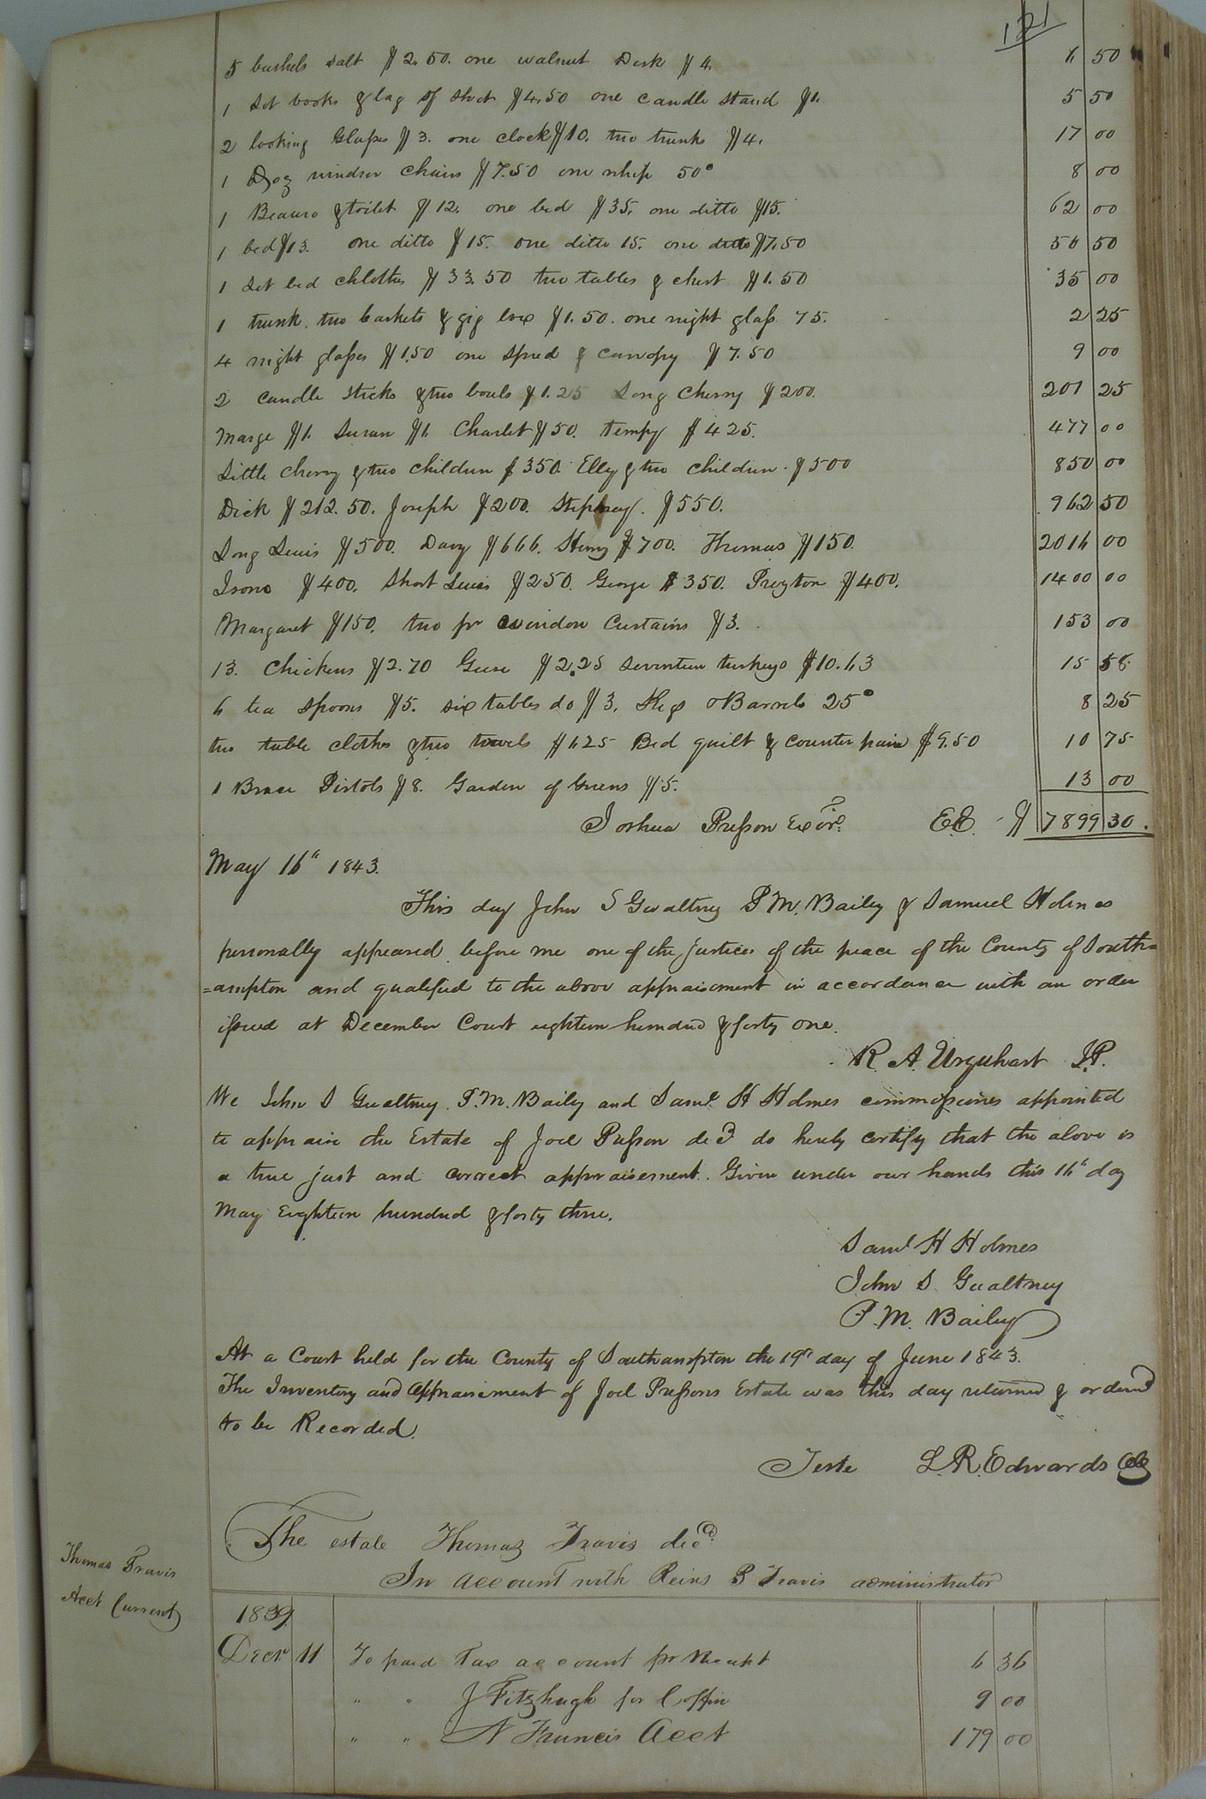 121
5 bushels salt $2.50. one walnut Desk $4. 6 50
1 Sot books & lag of shot $4.50 one candle stand $1. 5 50
2 looking Glasses $3. one clock $10. two trunks $4. 17 00
1 Doz windsor chairs $7.50 one whip 50c 8 00
1 Beauro & toilet $12. one bed $35. one ditto $15. 62 00
1 bed $13. one ditto $15. one ditto 15. one ditto $7.50 50 50
1 Sot bed chlothes $33.50 two tables & chest $1.50 35 00
1 trunk. two baskets & gig box $1.50. one night glass 75. 2 25
4 night glasses $1.50 one spred & canopy $7.50 9 00
2 candle sticks & two bowls $1.25 Long Cherry $200. 201 25
Marge $1. Susan $1. Charlet $50. tempy $425. 477 00
Little cherry & two children $350. Elly & two children. $500 850 00
Dick $212.50. Joseph $200. Stephney. $550. 962 50
Long Lewis $500. Davy $666. Henry $700. Thomas $150. 2016 00
Isono $400. Short Lewis $250. George $350. Preyton $400. 1400 00
Margaret $150. two pr window Curtains $3. 153 00
13. Chickens $2.70 Geese $2.25 seventeen turkeys $10.63 15 58
6 tea spoons $5. six tables do $3. Kegs & Barrels 25c 8 25
two table cloths & two towels $1.25 Bed quilt & counter pain $9.50 10 75
1 Brace Pistols $8. Garden of Greens $5. 13 00
Joshua Presson Exor. E.E. $7899 30.
May 16th 1843.
This day John S Gwaltney P M. Bailey & Samuel Holmes
personally appeared before me one of the justices of the peace of the County of South=
=ampton and qualified to the above appraisement in accordance with an order
issued at December Court eighteen hundred & forty one.
R. A. Urquhart J.P.
We John S Gwaltney. P. M. Bailey and Saml. H Holmes commissiones appointed
to appraise the Estate of Joel Presson decd do hereby certify that the above is
a true just and correct appraisement. Given under our hands this 16th day
May Eighteen hundred & forty three.
Saml H Holmes
John S. Gwaltney
P. M. Bailey
At a Court held for the County of Southampton the 19th day of June 1843.
The Inventory and Appraisement of Joel Pressons Estate was this day returned & ordered
to be Recorded.
Teste L. R. Edwards Clk
Thomas Travis
Acct Current
The estate Thomas Travis decd.
In account with Reins P Travis administrator
1839
Decr 11 To paid Tax account pr Receipt 6 36
" " J Fitzhugh for Coffin 9 00
" " N Francis Acct 179 00